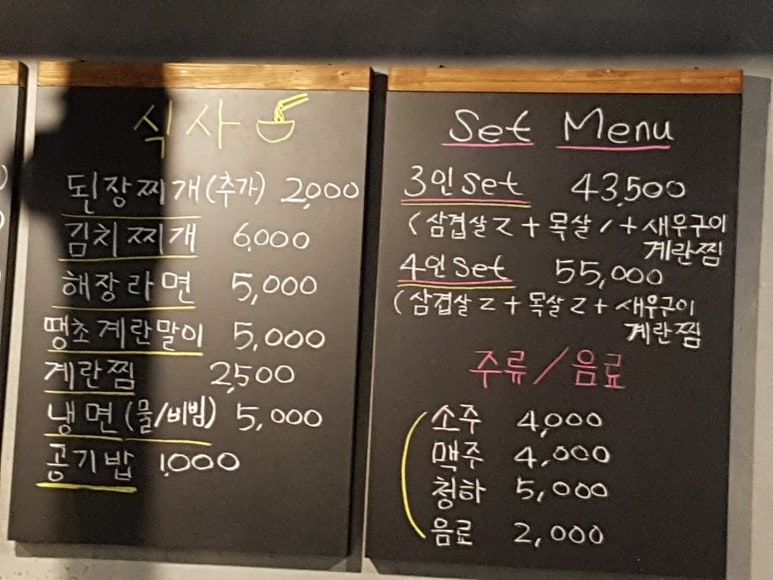 식사
된장찌개(추가) 2,000
김치찌개 6,000
해장라면 5,000
땡초계란말이 5,000
계란찜 2,500
냉면(물/비빔) 5,000
공기밥 1,000
Set Menu
3인Set 43,500
(삼겹살2+목살1+새우구이
계란찜
4인Set 55,000
(삼겹살2+목살2+새우구이
계란찜
주류/음료
소주 4,000
맥주 4,000
청하 5,000
음료 2,000